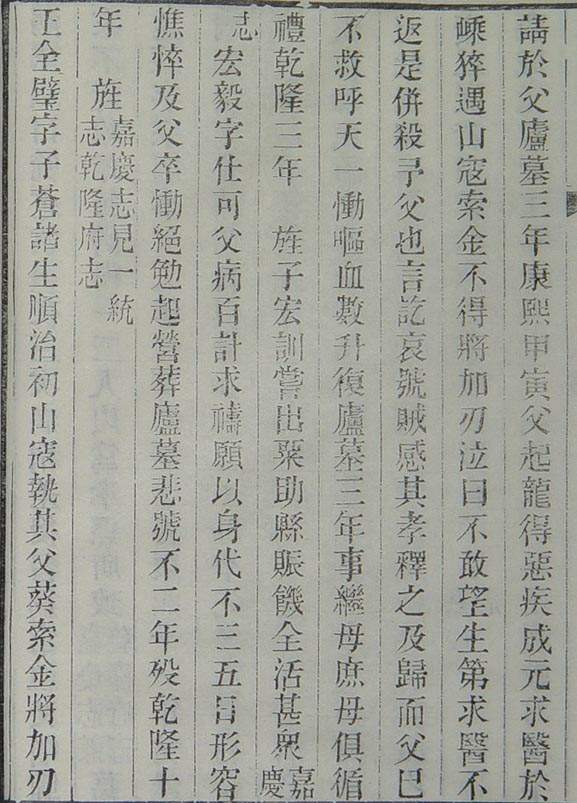 請於父廬墓三年康熙甲寅父起龍得惡疾成元求醫於
嵊猝遇山寇索金不得將加刃泣曰不敢望生第求醫不
返是併殺予父也言訖哀號賊感其孝釋之及歸而父已
不救呼天一慟嘔血數升復廬墓三年事繼母庶母俱循
禮乾隆三年　旌子宏訓嘗出粟助縣賑饑全活甚衆嘉慶
志宏毅字仕可父病百計求禱願以身代不三五日形容
憔悴及父卒慟絕勉起營葬廬墓悲號不二年歿乾隆十
年　旌嘉慶志見一統志乾隆府志
王全璧字子蒼諸生順治初山寇執其父葵索金將加刃